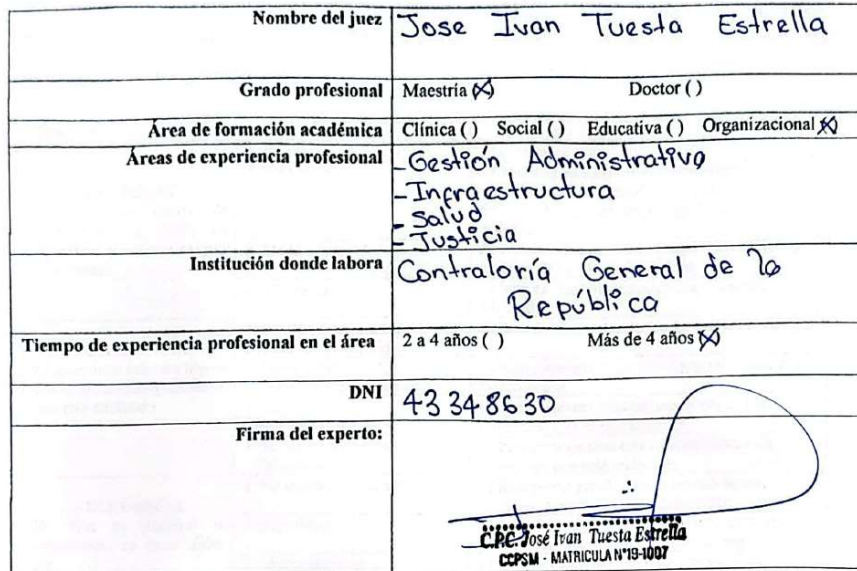 Nombre del juez Jose Ivan Tuesta Estrella
Grado profesional Maestría (X) Doctor ( )
Área de formación académica Clínica ( ) Social ( ) Educativa ( ) Organizacional (X)
Áreas de experiencia profesional -Gestión Administrativa
-Infraestructura
-Salud
-Justicia
Institución donde labora Contraloría General de la
República
Tiempo de experiencia profesional en el área 2 a 4 años ( ) Más de 4 años (X)
DNI 43348630
Firma del experto:
C.P.C. José Ivan Tuesta Estrella
CCPSM - MATRICULA N°19-1007